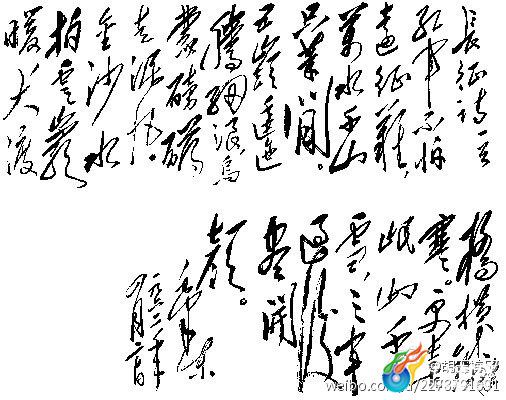 長征詩一首
紅軍不怕
遠征難,
萬水千山
只等閒。
五嶺逶迤
騰細浪,烏
蒙磅礴
走泥丸。
金沙水
拍雲巖
暖大渡
橋橫鐵索
寒。更喜
岷山千里
雪,三軍
過後
盡開
顏。
毛澤東
weibo.com/u/